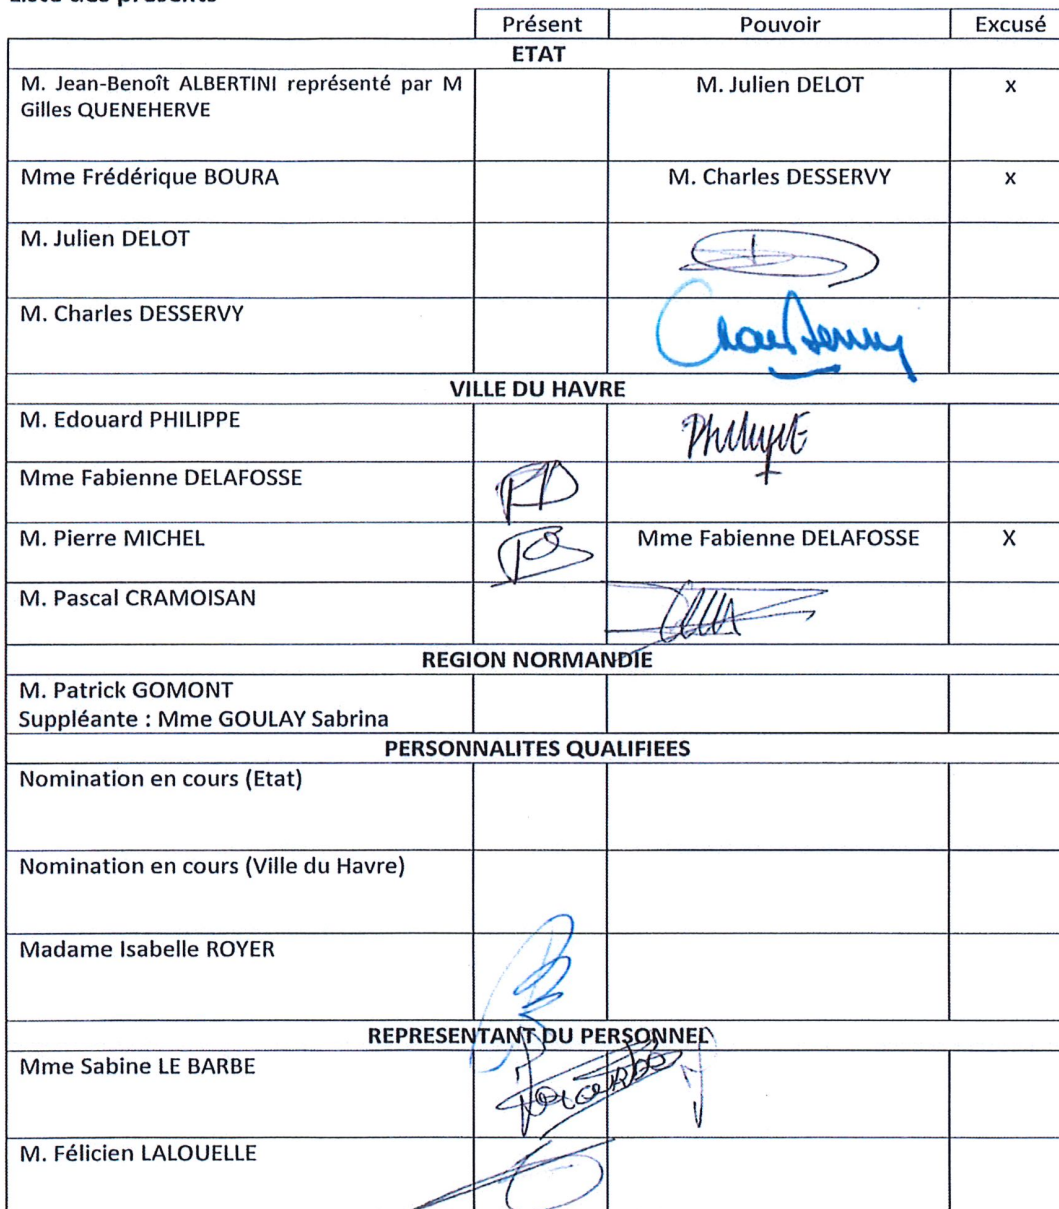 Liste des présents
Présent Pouvoir Excusé
ETAT
M. Jean-Benoît ALBERTINI représenté par M M. Julien DELOT x
Gilles QUENEHERVE
Mme Frédérique BOURA M. Charles DESSERVY x
M. Julien DELOT
M. Charles DESSERVY
VILLE DU HAVRE
M. Edouard PHILIPPE
Mme Fabienne DELAFOSSE
M. Pierre MICHEL Mme Fabienne DELAFOSSE X
M. Pascal CRAMOISAN
REGION NORMANDIE
M. Patrick GOMONT
Suppléante : Mme GOULAY Sabrina
PERSONNALITES QUALIFIEES
Nomination en cours (Etat)
Nomination en cours (Ville du Havre)
Madame Isabelle ROYER
REPRESENTANT DU PERSONNEL
Mme Sabine LE BARBE
M. Félicien LALOUELLE